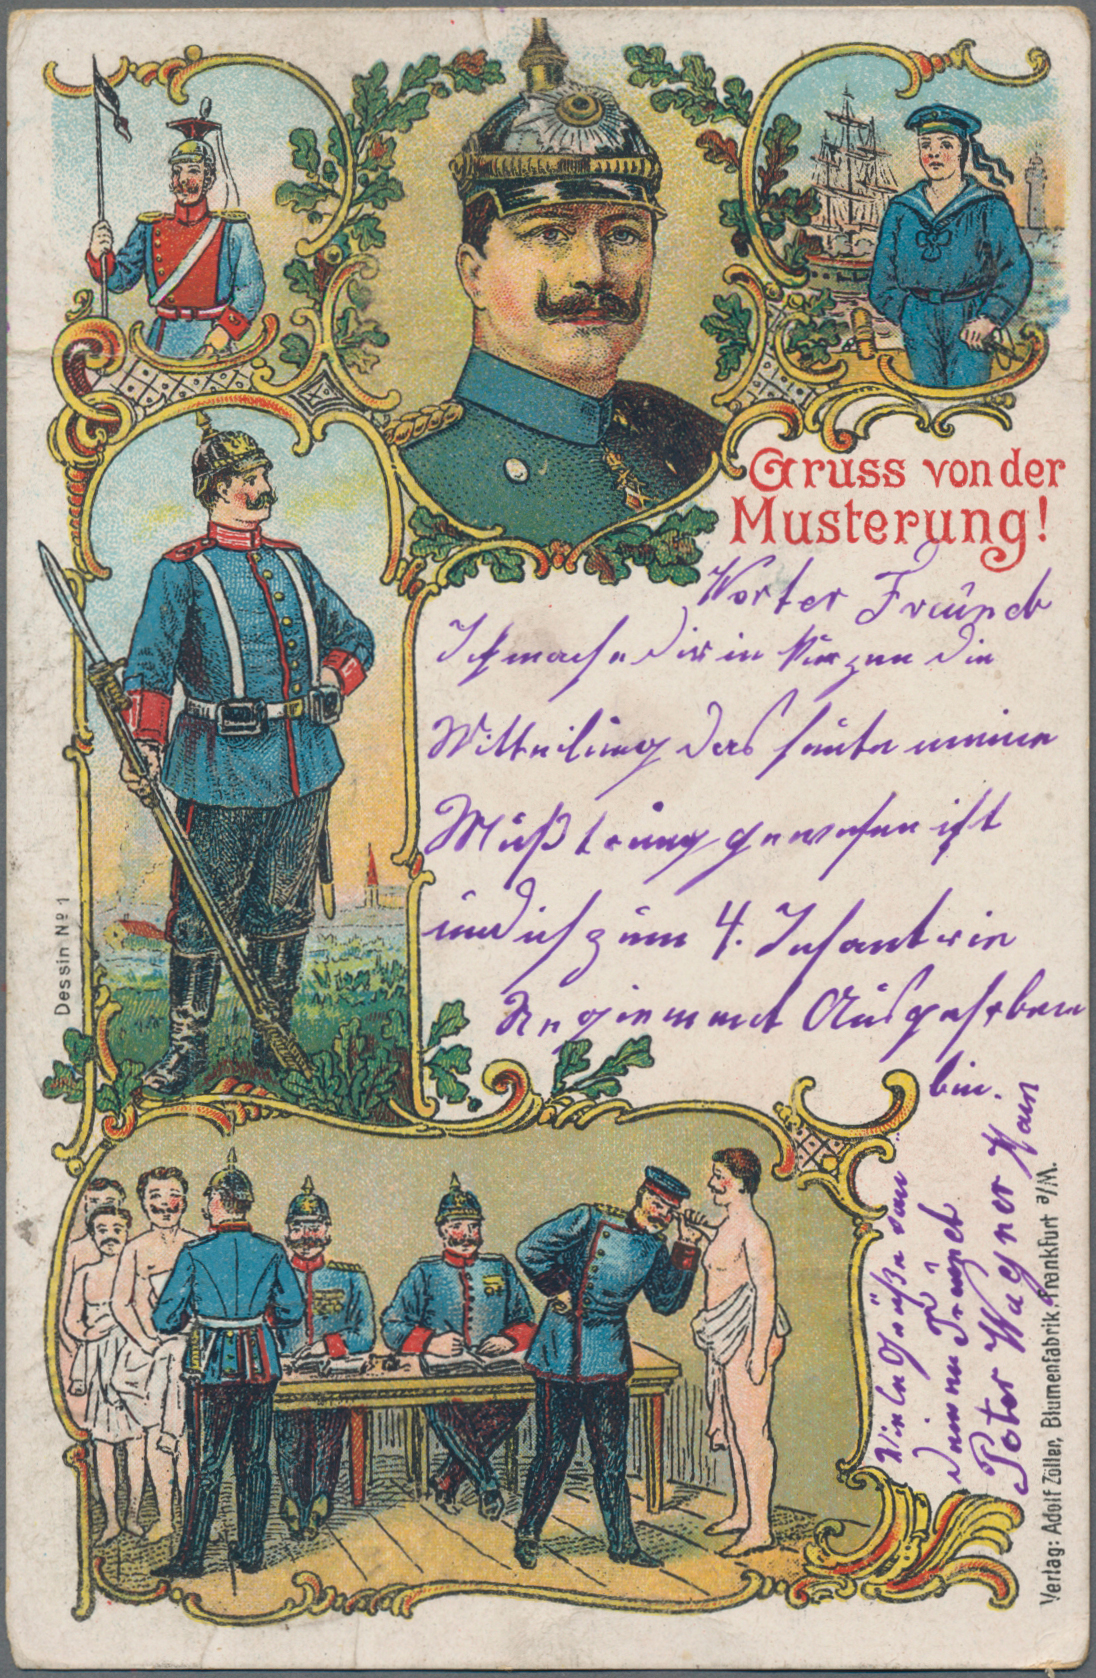 Gruss von der
Musterung!
Werter Freund
Ich mache Dir in Kürzen die
Mitteilung das heute meine
Mußterung gewesen ist
und ich zum 4. Infanterie
Regiement Ausgehoben
bin.
Viele Grüße von
deinem Freund
Peter Wagner
Dessin No 1
Verlag: Adolf Zöller, Blumenfabrik, Frankfurt a/M.